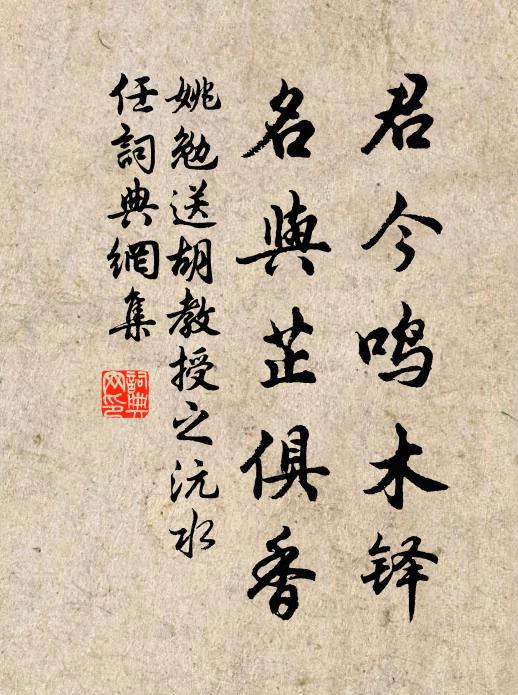 君今鸣木铎
名與芷俱香
姚勉送胡教授之沅水
任詞典網集
詞典
网印